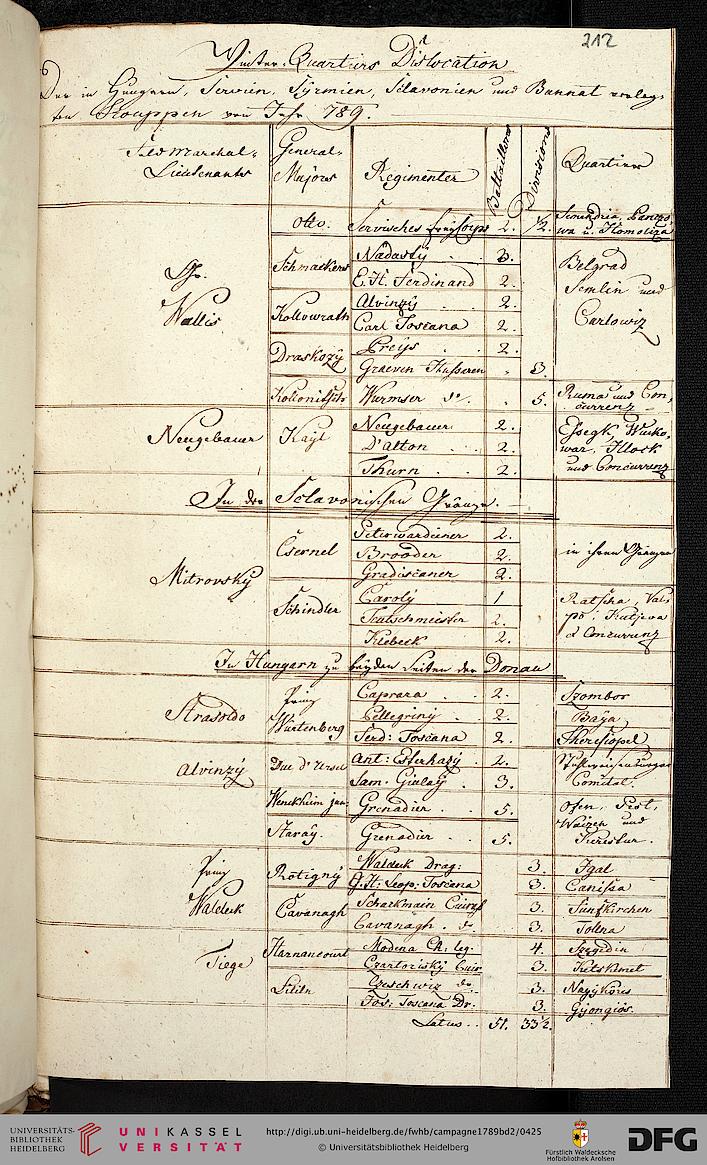 212
Winter-Quartiers Dislocation
Der in Hungarn, Servien, Syrmien, Sclavonien und Bannat verleg-
ten Trouppen vom Jahr 789.
Feld Marchal- Lieutenants | General- Majors | Regimenter | Battaillons | Divisions | Quartiere
Otto. | Servisches Freÿ Corps | 2. | 1/2. | Semendria, Pancso
wa u. Homoliza
Gr. Wallis | Schmackers | Nadastÿ | 3. | Belgrad
E. H. Ferdinand | 2. | Semlin und
Kollowrath | Alvinzÿ | 2. | Carlowiz
Carl Toscana | 2.
Draskozÿ | Preÿs | 2.
Graeven Hussaren | " | 3.
Kollonitsch | Wurmser do. | " | 5. | Ruma und Con,
currenz
Neugebauer | Kaÿl | Neugebauer | 2. | Essegk, Wuko,
D'alton | 2. | war, Illock
Thurn | 2. | und Concurrenz
In der Sclavonischen Gränze.
Mitrovskÿ | Csernel | Peterwardeiner | 2.
Brooder | 2. | in ihren Gränzen
Gradiscaner | 2.
Schindler | Carolÿ | 1 | Ratscha, Val-
Teutschmeister | 2. | po, Kutjeva
Klebeck | 2. | & Concurrenz
In Hungarn zu beÿden Seiten der Donau
Strasoldo | Prinz Würtenberg | Caprara | 2. | Zombor
Pellegrinÿ | 2. | Baÿa
Ferd: Toscana | 2. | Theresiopel
Alvinzÿ | Duc d'Ursel | Ant: Esterhazÿ | 2. | Stuhlweissenburger
Sam. Giulaÿ | 3. | Comitat.
Wenckheim jun: | Grenadier | 5. | Ofen, Pest,
Waizen und
Staraÿ. | Grenadier | 5.
Prinz Waldeck | Rotignÿ | Waldeck Drag: | 3. | Igal
G. H: Leop: Toscana | 3. | Canissa
Cavanagh | Schackmain Cuirass | 3. | Fünfkirchen
Cavanagh. do | 3. | Tolna
Tiege | Harnancourt | Modena Ch: leg. | 4. | Szegedin
Czartoriskÿ Cuir | 3. | Ketskmet
Lilien | Czeschwiz do. | 3. | Nagÿkörös
Jos: Toscana Dr. | 3. | Gyöngiös.
Latus | 51. | 33 1/2.
UNIVERSITÄTS-
BIBLIOTHEK
HEIDELBERG
UNIKASSEL
VERSITÄT
http://digi.ub.uni-heidelberg.de/fwhb/campagne1789bd2/0425
© Universitätsbibliothek Heidelberg
Fürstlich Waldecksche
Hofbibliothek Arolsen
DFG